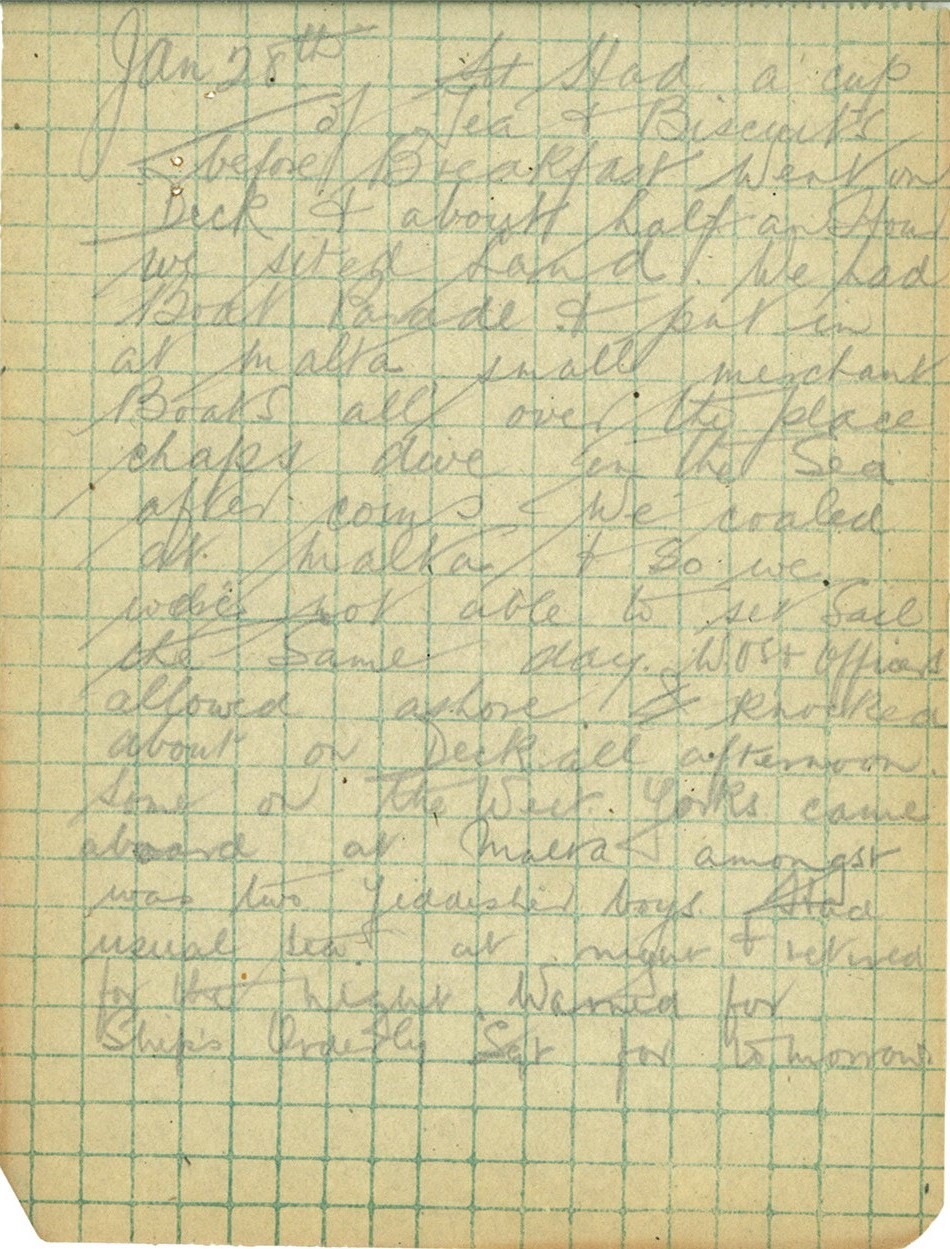 Jan 28th Had a cup
of Tea & Biscuits
before Breakfast Went on
Deck & about half an Hour
we sited Land. We had
Boat Parade & put in
at Malta small merchant
Boats all over the place
chaps dive in the Sea
after coins We coaled
at Malta & so we
were not able to set Sail
the Same day. W.Os & Officers
allowed ashore. Knocked
about on Deck all afternoon.
Some of the West Yorks came
aboard at Malta amongst
was two Yiddisher boys. Had
usual tea at night & retired
for the night. Warned for
Ship's Orderly Sgt for tomorrow